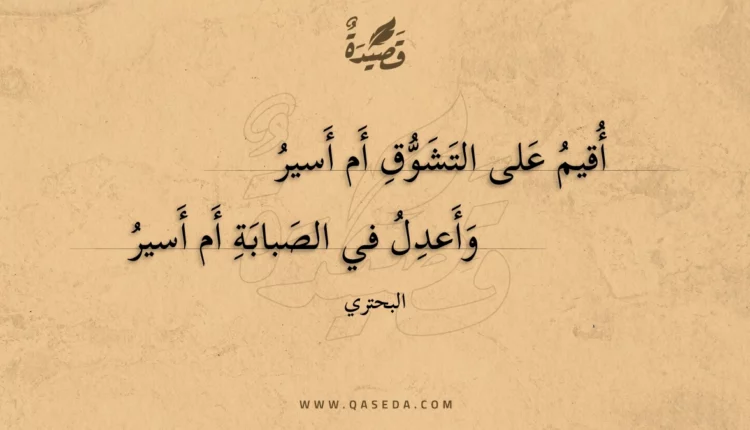 قَصِيدَةٌ
أُقيمُ عَلى التَشَوُّقِ أَم أَسيرُ
وَأَعدِلُ في الصَبابَةِ أَم أَسيرُ
البحتري
WWW.QASEDA.COM